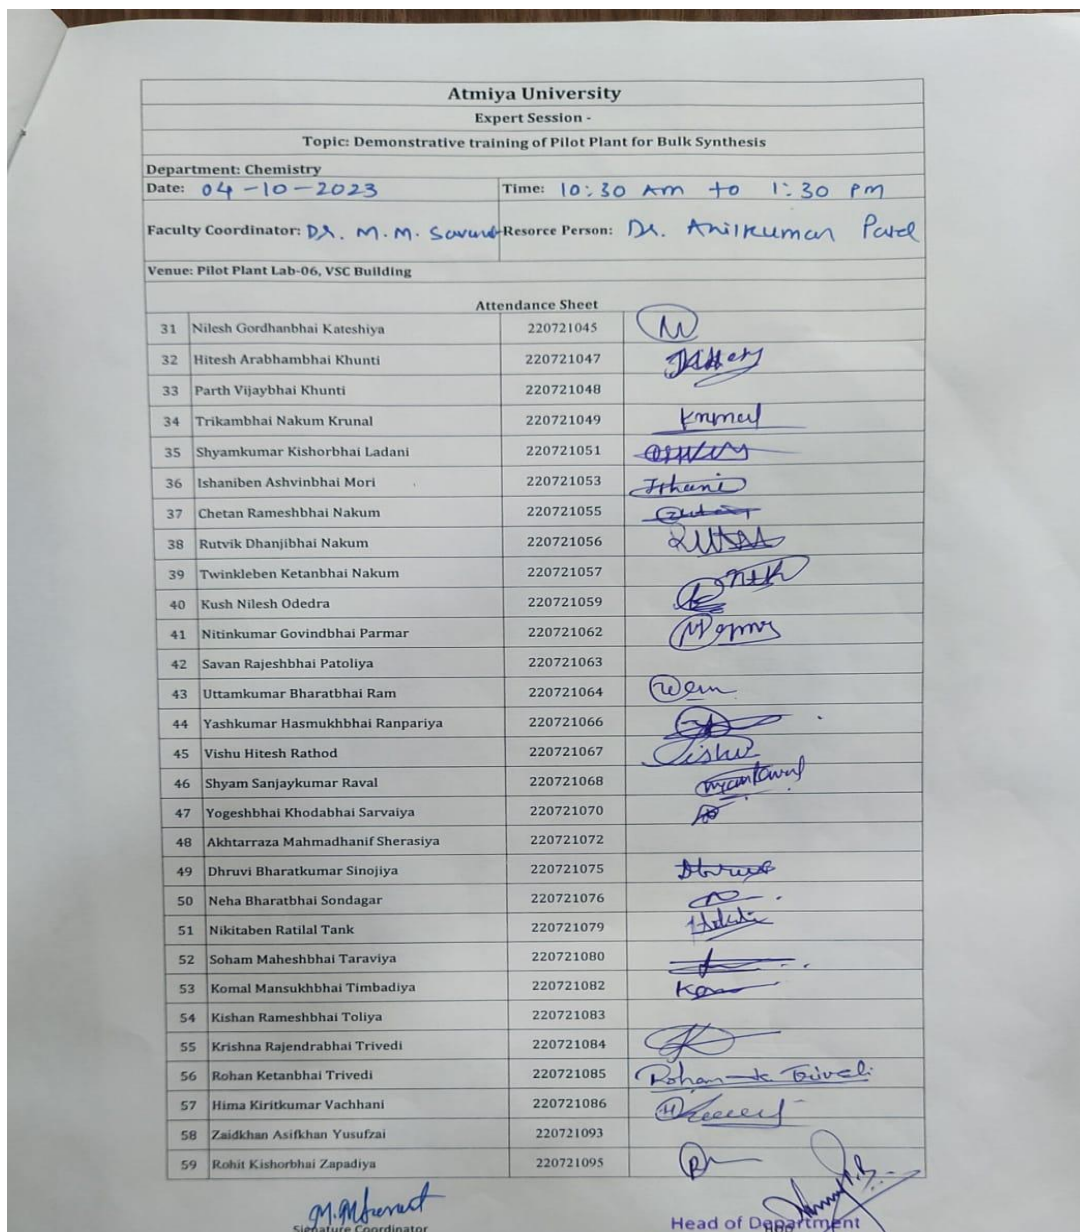 Atmiya University
Expert Session -
Topic: Demonstrative training of Pilot Plant for Bulk Synthesis
Department: Chemistry
Date: 04-10-2023 Time: 10:30 AM to 1:30 PM
Faculty Coordinator: Dr. M. M. Savant Resorce Person: Dr. Anilkumar Patel
Venue: Pilot Plant Lab-06, VSC Building
Attendance Sheet
31 Nilesh Gordhanbhai Kateshiya 220721045
32 Hitesh Arabhambhai Khunti 220721047
33 Parth Vijaybhai Khunti 220721048
34 Trikambhai Nakum Krunal 220721049
35 Shyamkumar Kishorbhai Ladani 220721051
36 Ishaniben Ashvinbhai Mori 220721053 Ishani
37 Chetan Rameshbhai Nakum 220721055
38 Rutvik Dhanjibhai Nakum 220721056
39 Twinkleben Ketanbhai Nakum 220721057
40 Kush Nilesh Odedra 220721059
41 Nitinkumar Govindbhai Parmar 220721062
42 Savan Rajeshbhai Patoliya 220721063
43 Uttamkumar Bharatbhai Ram 220721064
44 Yashkumar Hasmukhbhai Ranpariya 220721066
45 Vishu Hitesh Rathod 220721067 Vishu
46 Shyam Sanjaykumar Raval 220721068
47 Yogeshbhai Khodabhai Sarvaiya 220721070
48 Akhtarraza Mahmadhanif Sherasiya 220721072
49 Dhruvi Bharatkumar Sinojiya 220721075
50 Neha Bharatbhai Sondagar 220721076
51 Nikitaben Ratilal Tank 220721079
52 Soham Maheshbhai Taraviya 220721080
53 Komal Mansukhbhai Timbadiya 220721082
54 Kishan Rameshbhai Toliya 220721083
55 Krishna Rajendrabhai Trivedi 220721084
56 Rohan Ketanbhai Trivedi 220721085 Rohan K. Trivedi
57 Hima Kiritkumar Vachhani 220721086
58 Zaidkhan Asifkhan Yusufzai 220721093
59 Rohit Kishorbhai Zapadiya 220721095
Signature Coordinator HOD
Head of Department